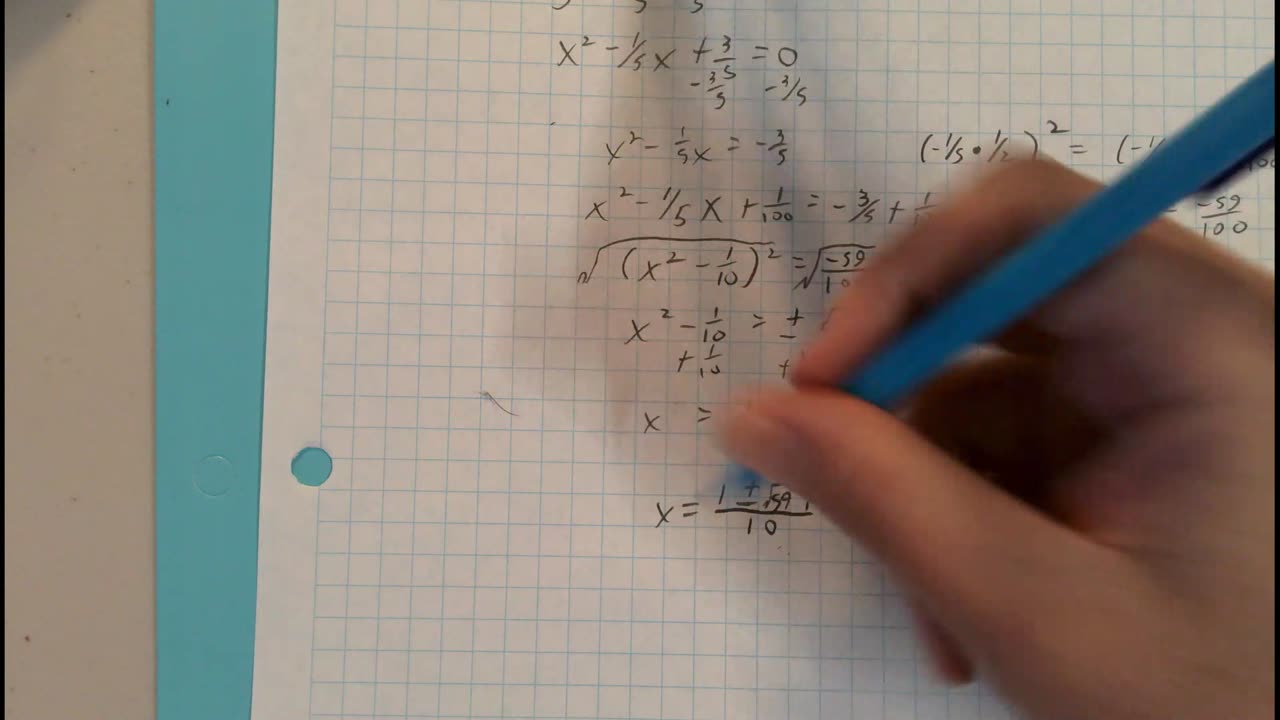 x² - 1/5 x + 3/5 = 0
- 3/5 - 3/5
x² - 1/5 x = - 3/5 (-1/5 • 1/2)² = (-1/
x² - 1/5 x + 1/100 = - 3/5 + 1/ -59/100
√(x² - 1/10)² = √-59/10
x² - 1/10 = ±
+ 1/10 +
x =
x = 1 ± √59 i / 10